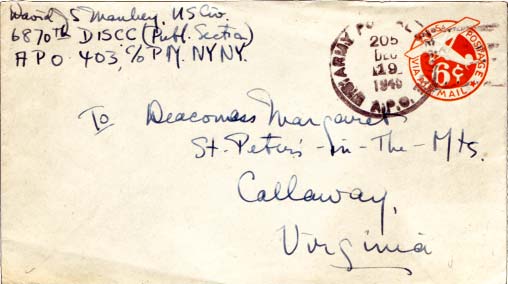 David S Manley, US Civ.
6870th DISCC (Publ. Section)
APO 403, c/o P.M. NY NY.
U.S. ARMY
205
DEC
29
1945
A.P.O.
U.S. POSTAGE
6¢
VIA AIR MAIL
To Deaconess Margaret
St. Peter's-in-The-Mts.
Callaway,
Virginia